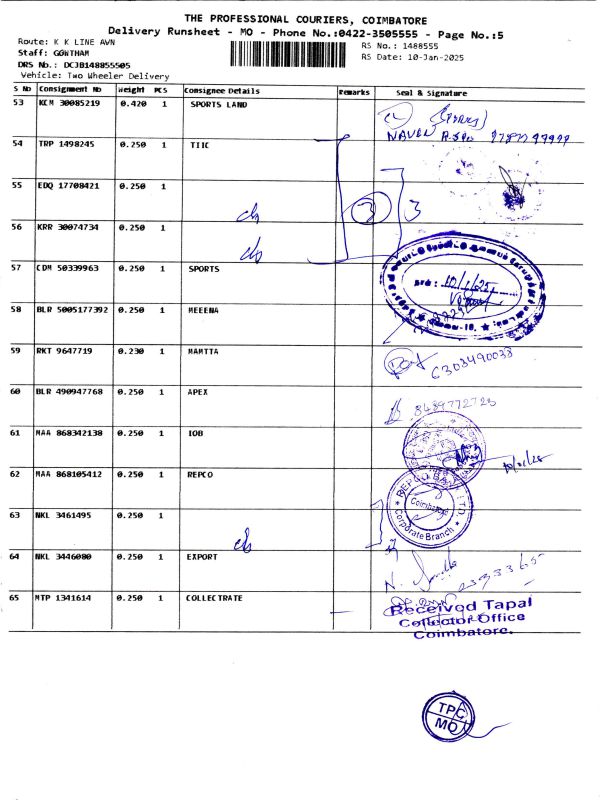 THE PROFESSIONAL COURIERS, COIMBATORE
Delivery Runsheet - MO - Phone No.:0422-3505555 - Page No.:5
Route: K K LINE AWN
RS No.: 1488555
Staff: GOWTHAM
RS Date: 10-Jan-2025
DRS No.: DCJB148855505
Vehicle: Two Wheeler Delivery
S No Consignment No Weight PCS Consignee Details Remarks Seal & Signature
53 KCM 30085219 0.420 1 SPORTS LAND
54 TRP 1498245 0.250 1 TIIC
55 EDQ 17708421 0.250 1
3 3
56 KRR 30074734 0.250 1
57 CDM 50339963 0.250 1 SPORTS
10/1/25
58 BLR 5005177392 0.250 1 MEEENA
59 RKT 9647719 0.230 1 MAMTTA
6303490038
60 BLR 490947768 0.250 1 APEX
8489772723
61 MAA 868342138 0.250 1 IOB
62 MAA 868105412 0.250 1 REPCO
REPCO BANK LTD
Coimbatore
Corporate Branch
63 NKL 3461495 0.250 1
64 NKL 3446080 0.250 1 EXPORT
65 MTP 1341614 0.250 1 COLLECTRATE
Received Tapal
Collector Office
Coimbatore.
TPC
MO